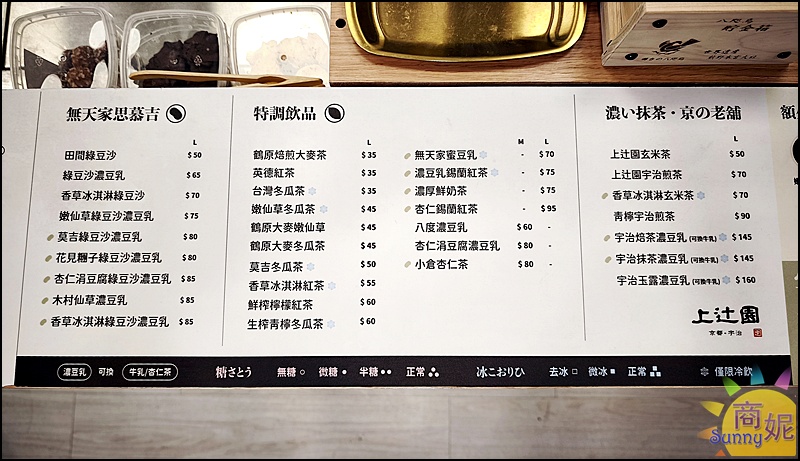 無天家思慕吉
L
田間綠豆沙 $50
綠豆沙濃豆乳 $65
香草冰淇淋綠豆沙 $70
嫩仙草綠豆沙濃豆乳 $75
莫吉綠豆沙濃豆乳 $80
花見糰子綠豆沙濃豆乳 $80
杏仁涓豆腐綠豆沙濃豆乳 $85
木村仙草濃豆乳 $85
香草冰淇淋綠豆沙濃豆乳 $85
特調飲品
L
鶴原焙煎大麥茶 $35
英德紅茶 $35
台灣冬瓜茶 $35
嫩仙草冬瓜茶 $45
鶴原大麥嫩仙草 $45
鶴原大麥冬瓜茶 $45
莫吉冬瓜茶 $50
香草冰淇淋紅茶 $55
鮮榨檸檬紅茶 $60
生榨青檸冬瓜茶 $60
M L
無天家蜜豆乳 - $70
濃豆乳錫蘭紅茶 - $75
濃厚鮮奶茶 - $75
杏仁錫蘭紅茶 - $95
八度濃豆乳 $60 -
杏仁涓豆腐濃豆乳 $80 -
小倉杏仁茶 $80 -
濃い抹茶・京の老舗
L
上辻園玄米茶 $50
上辻園宇治煎茶 $70
香草冰淇淋玄米茶 $70
青檸宇治煎茶 $90
宇治焙茶濃豆乳(可換牛乳) $145
宇治抹茶濃豆乳(可換牛乳) $145
宇治玉露濃豆乳(可換牛乳) $160
上辻園
京都・宇治
濃豆乳 可換 牛乳/杏仁茶 糖さとう 無糖 微糖 半糖 正常 冰こおりひ 去冰 微冰 正常 僅限冷飲
商妮
Sunny